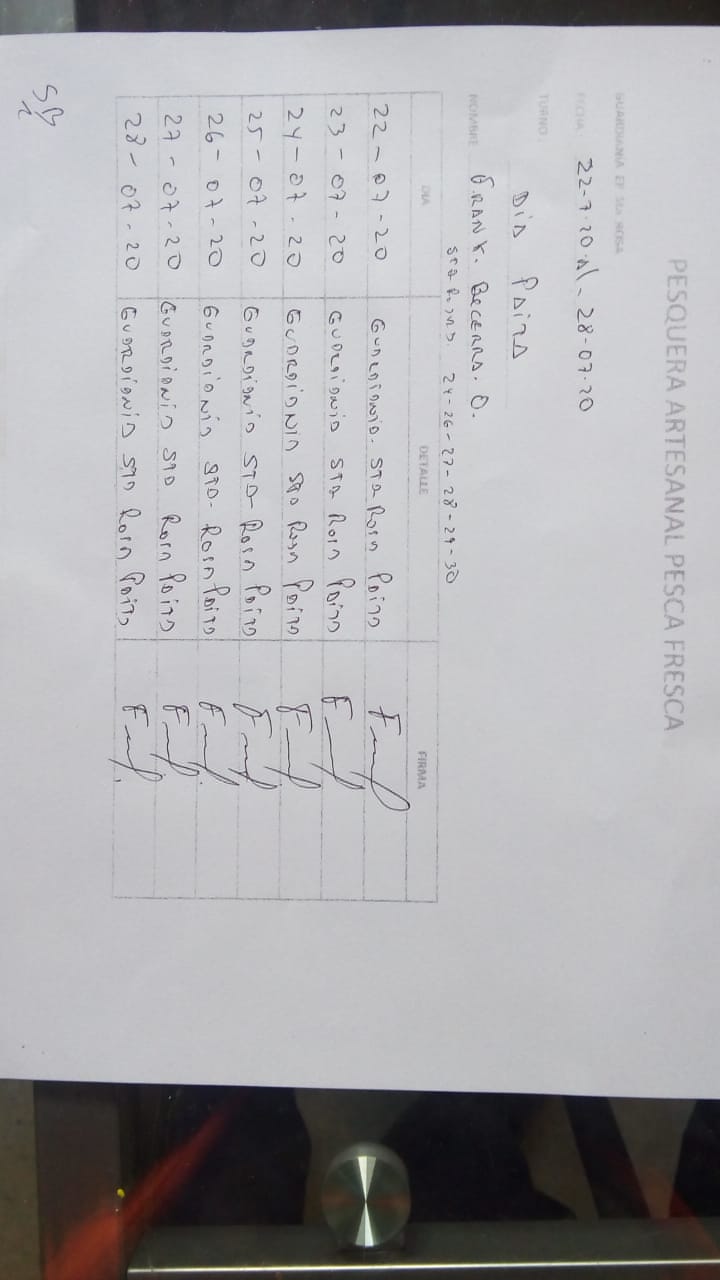 PESQUERA ARTESANAL PESCA FRESCA
GUARDIANIA EP STA ROSA
FECHA 22-7-20 Al - 28-07-20
TURNO: Dia Paita
NOMBRE FRANK. Becerra. O.
Sta Rosa 24-26-27-28-29-30
DIA DETALLE FIRMA
22-07-20 Guardiania. Sta Rosa Paita
23-07-20 Guardiania Sta Rosa Paita
24-07-20 Guardiania Sta Rosa Paita
25-07-20 Guardiania Sta-Rosa Paita
26-07-20 Guardiania Sta-Rosa Paita
27-07-20 Guardiania Sta Rosa Paita
28-07-20 Guardiania Sta Rosa Paita